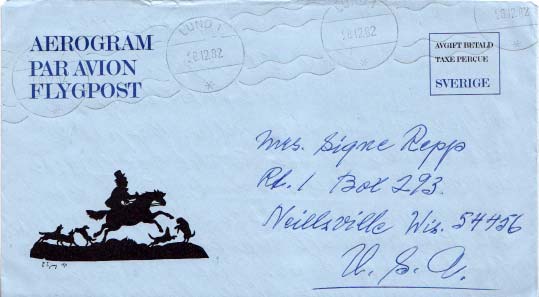 AEROGRAM
PAR AVION
FLYGPOST
LUND 1
8.12.82
LUND 1
8.12.82
8.12.82
AVGIFT BETALD
TAXE PERÇUE
SVERIGE
Mrs. Signe Repp
Rt. 1 Box 293.
Neillsville Wis. 54456
U. S. A.